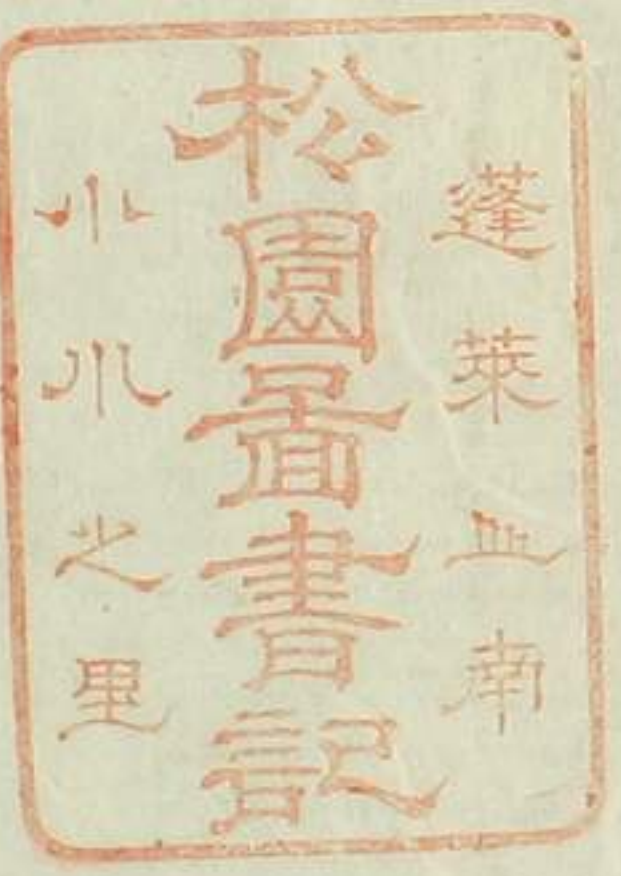 蓬萊丘南
松園圖書記
小川之里